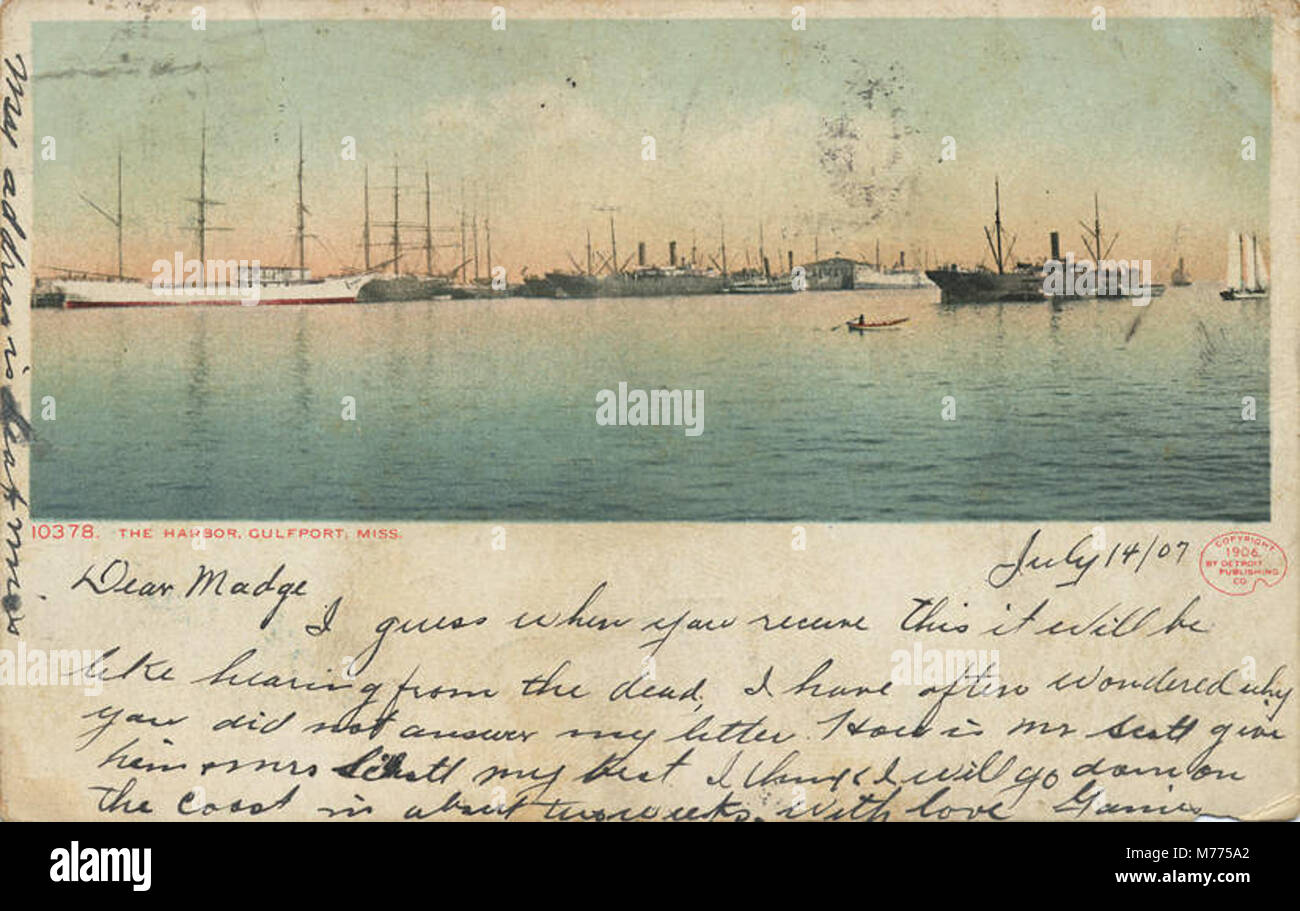 My address is
10378. THE HARBOR, GULFPORT, MISS.
COPYRIGHT, 1906, BY DETROIT PUBLISHING CO.
July 14/07
Dear Madge
I guess when you receive this it will be
like hearing from the dead, I have often wondered why
you did not answer my letter. How is Mr Scott give
him + mrs Scott my best I think I will go down on
the coast in about two weeks. with love
alamy
Image ID: M775A2
www.alamy.com